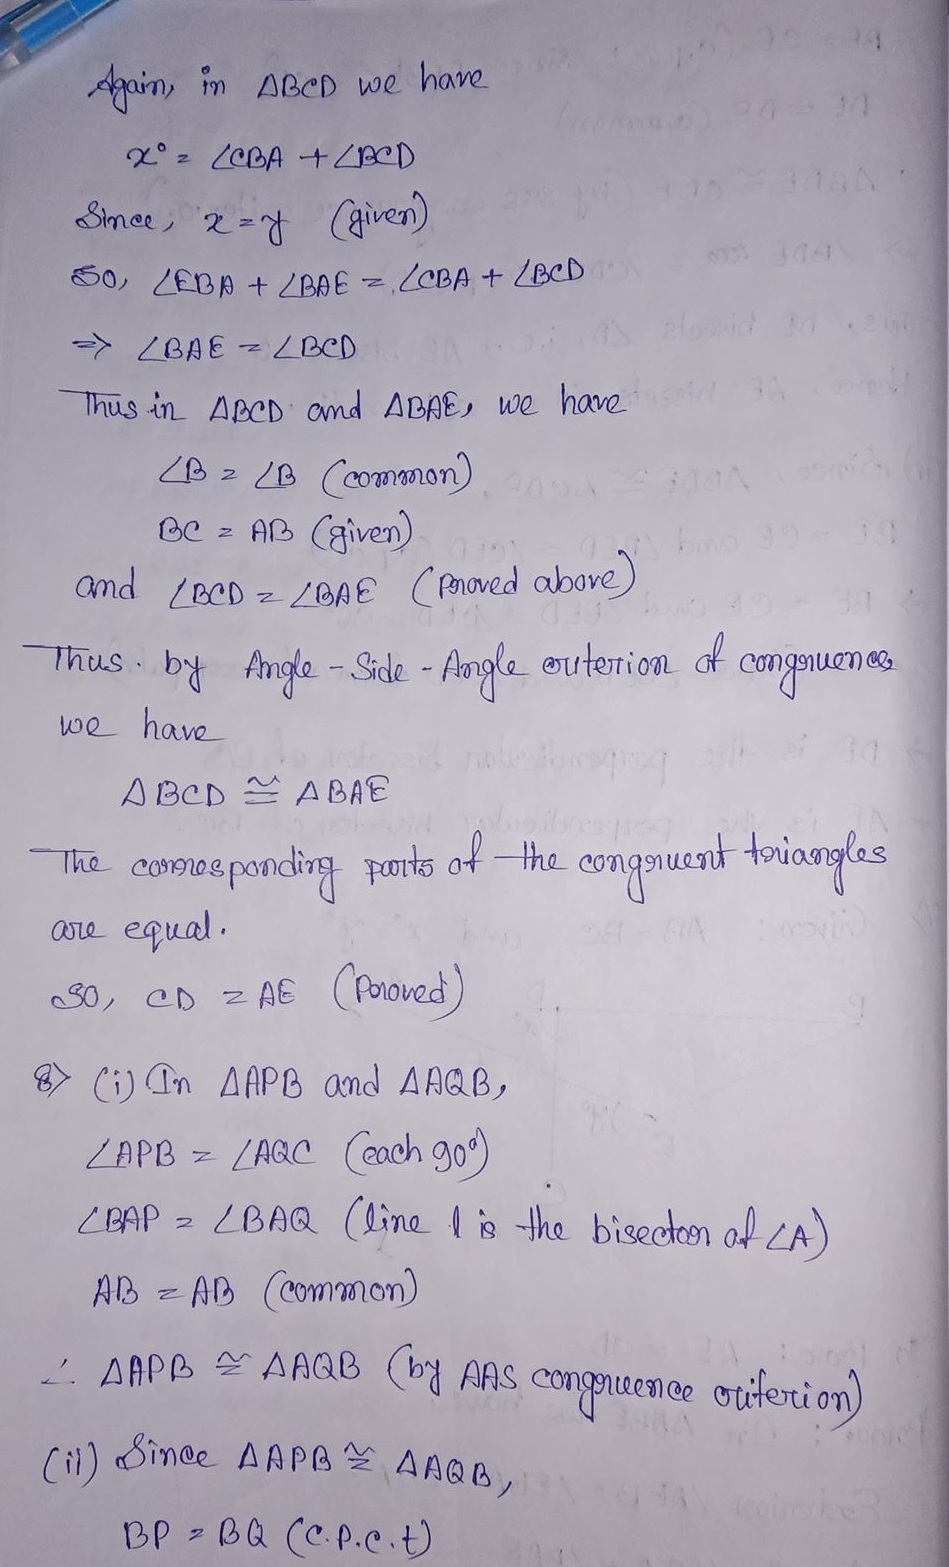 Again, in ΔBCD we have
x° = ∠CBA + ∠BCD
Since, x = y (given)
So, ∠EBA + ∠BAE = ∠CBA + ∠BCD
⇒ ∠BAE = ∠BCD
Thus in ΔBCD and ΔBAE, we have
∠B = ∠B (common)
BC = AB (given)
and ∠BCD = ∠BAE (proved above)
Thus by Angle - Side - Angle criterion of congruence
we have
ΔBCD ≅ ΔBAE
The corresponding parts of the congruent triangles
are equal.
So, CD = AE (Proved)
8> (i) In ΔAPB and ΔAQB,
∠APB = ∠AQC (each 90°)
∠BAP = ∠BAQ (line l is the bisector of ∠A)
AB = AB (common)
∴ ΔAPB ≅ ΔAQB (by AAS congruence criterion)
(ii) Since ΔAPB ≅ ΔAQB,
BP = BQ (C.P.C.t)